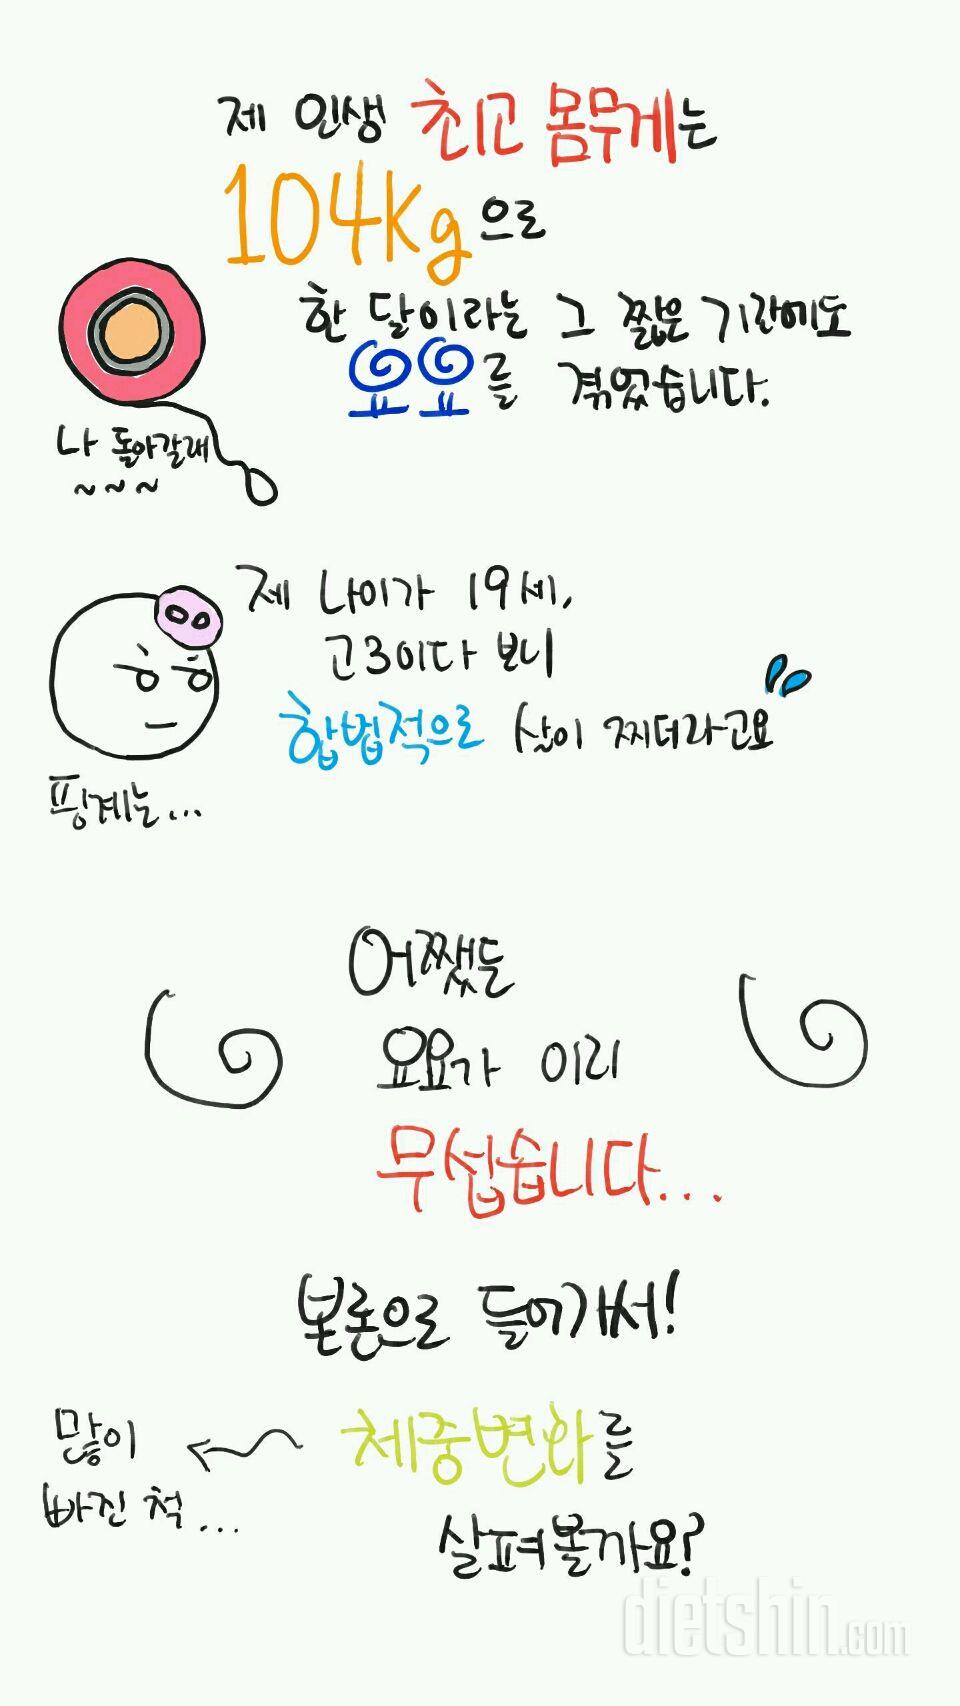 제 인생 최고 몸무게는
104Kg으로
한 달이라는 그 짧은 기간에도
요요를 겪었습니다.
나 돌아갈래
~~~
제 나이가 19세,
고3이다 보니
합법적으로 살이 찌더라고요
핑계는...
어쨌든
요요가 이리
무섭습니다...
본론으로 들어가서!
체중변화를
많이
빠진 척...
살펴볼까요?
dietshin.com